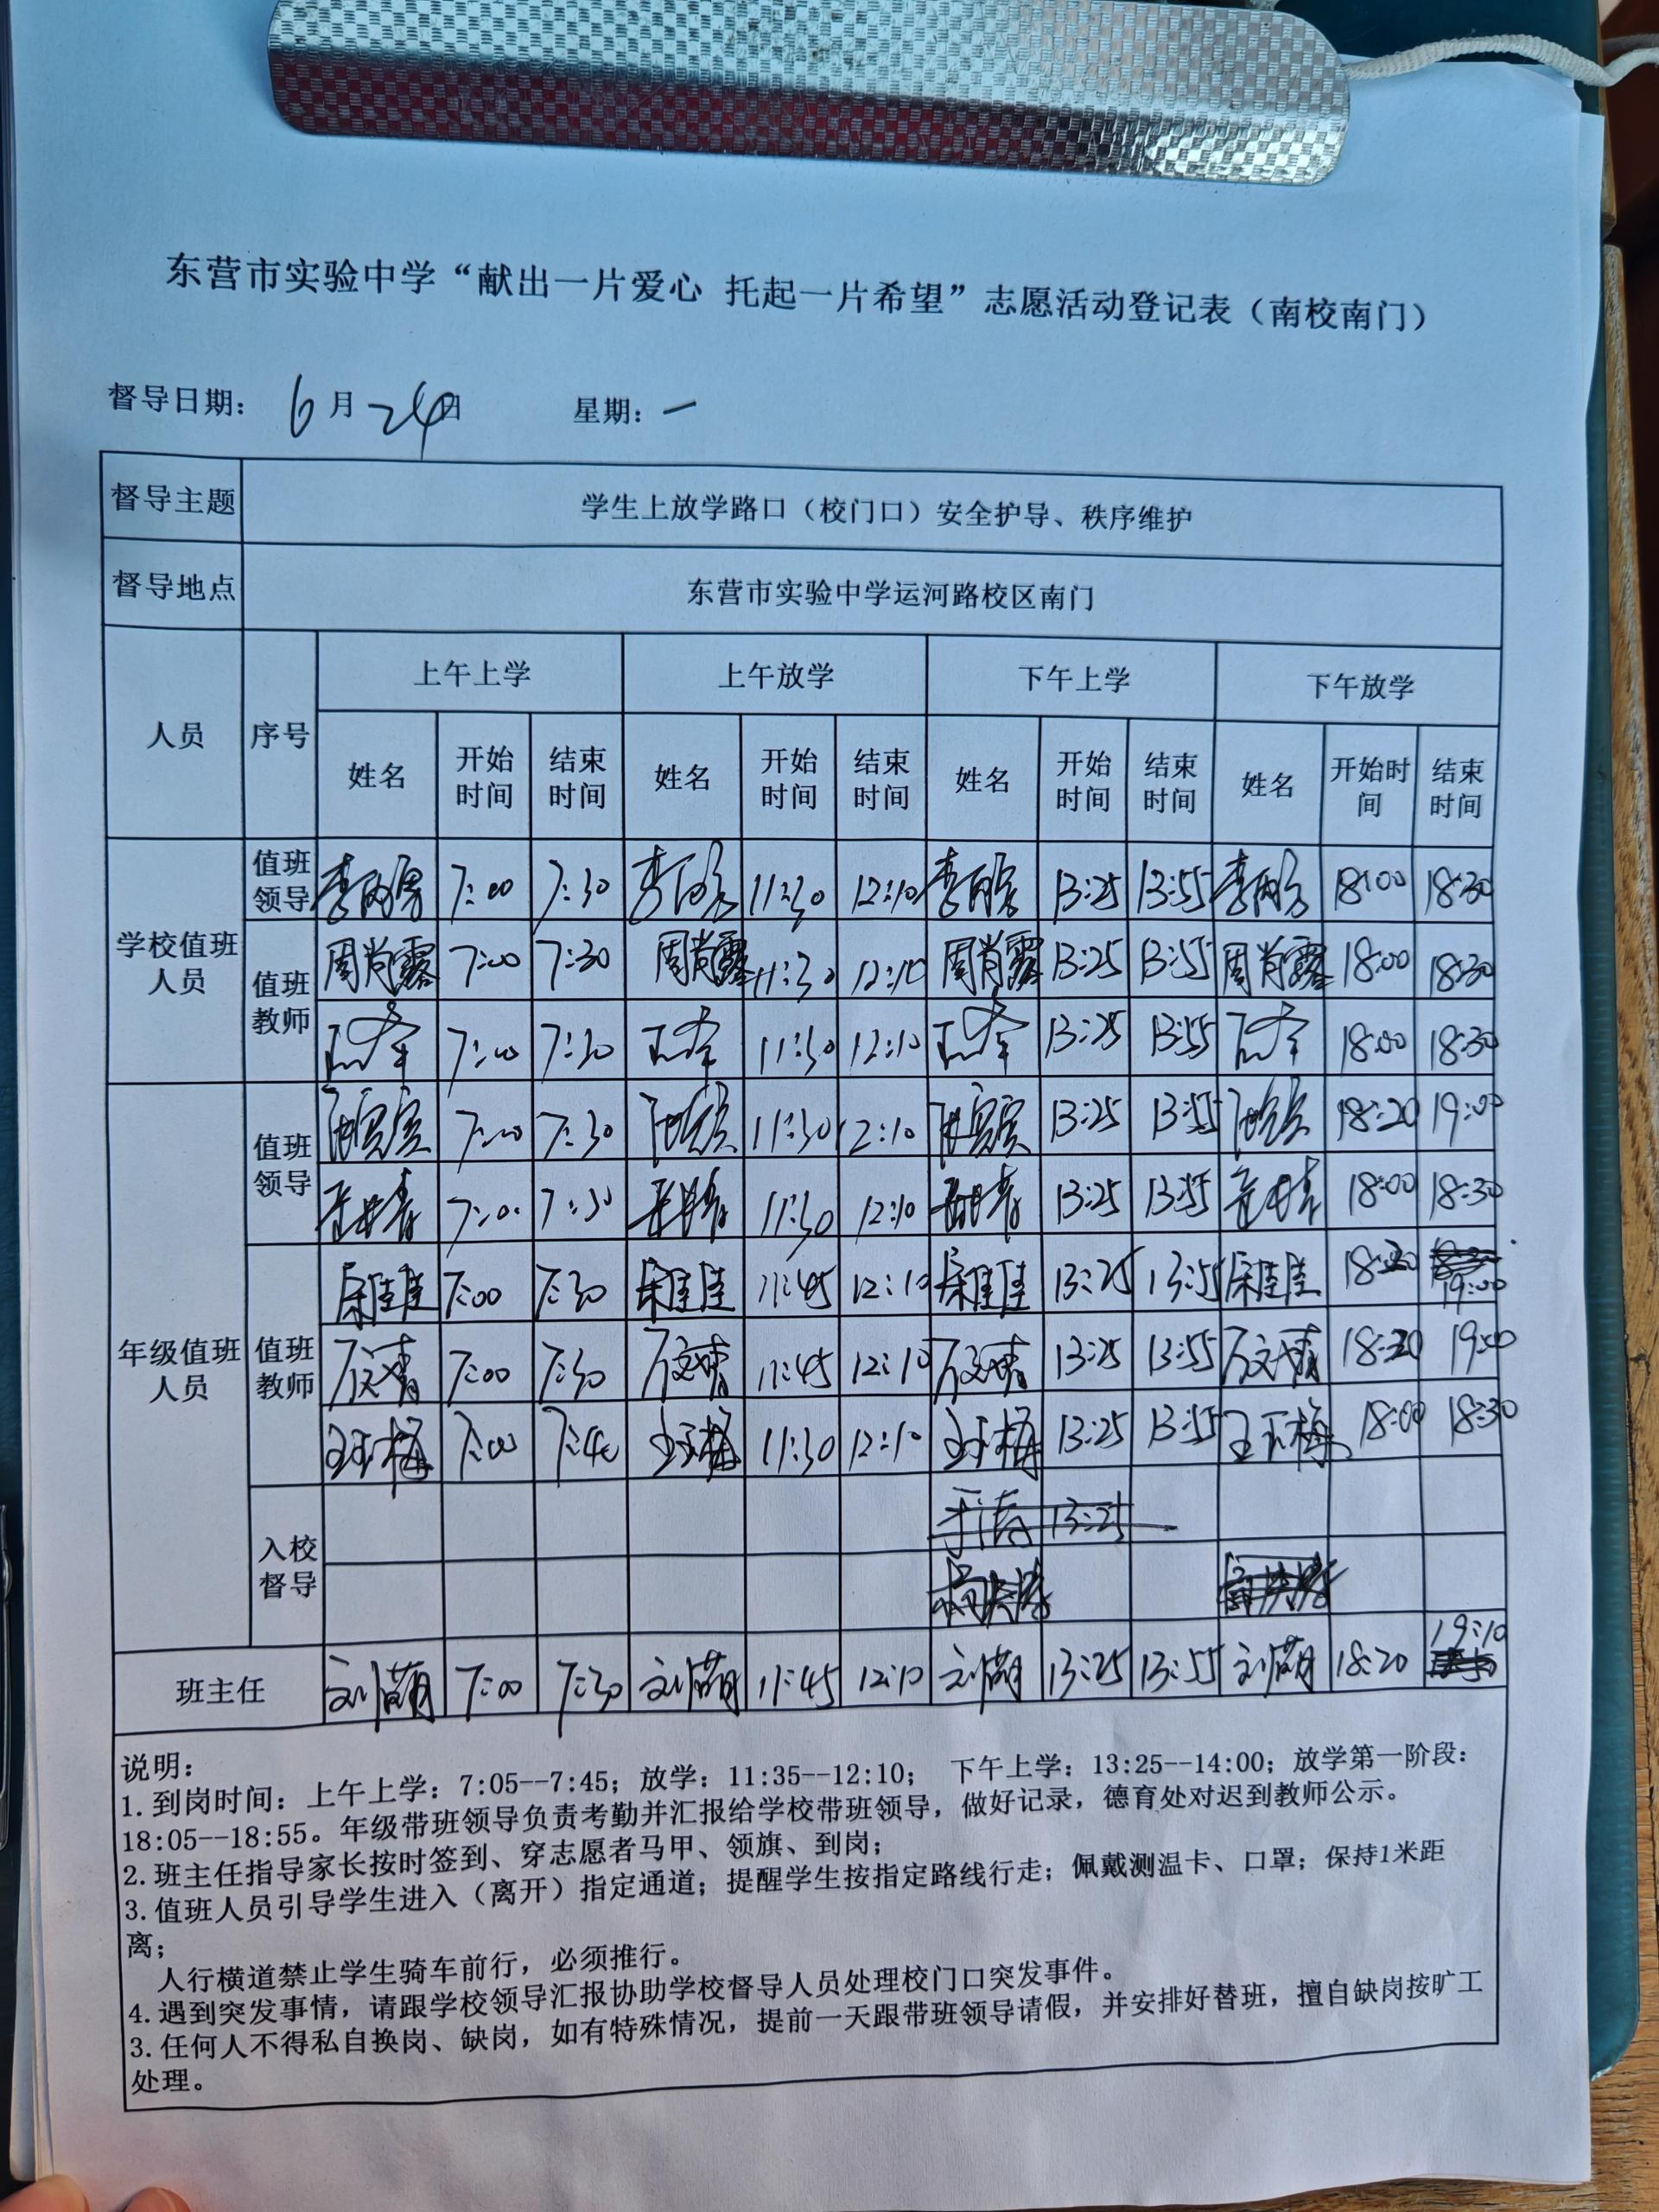 东营市实验中学“献出一片爱心 托起一片希望”志愿活动登记表（南校南门）
督导日期： 6月24日 星期：一
督导主题 学生上放学路口（校门口）安全护导、秩序维护
督导地点 东营市实验中学运河路校区南门
人员 序号 上午上学 上午放学 下午上学 下午放学
姓名 开始时间 结束时间 姓名 开始时间 结束时间 姓名 开始时间 结束时间 姓名 开始时间 结束时间
学校值班人员 值班领导 7:00 7:30 11:30 12:10 13:25 13:55 18:00 18:30
值班教师 周肖露 7:00 7:30 周肖露 11:30 12:10 周肖露 13:25 13:55 周肖露 18:00 18:30
7:00 7:30 11:30 12:10 13:25 13:55 18:00 18:30
年级值班人员 值班领导 7:00 7:30 11:30 12:10 13:25 13:55 18:20 19:00
7:00 7:30 11:30 12:10 13:25 13:55 18:00 18:30
值班教师 宋佳佳 7:00 7:30 宋佳佳 11:45 12:10 宋佳佳 13:25 13:55 宋佳佳 18:20 19:00
万文靖 7:00 7:30 万文靖 11:45 12:10 万文靖 13:25 13:55 万文靖 18:20 19:00
王玉梅 7:00 7:40 王玉梅 11:30 12:10 王玉梅 13:25 13:55 王玉梅 18:00 18:30
入校督导 13:25
班主任 刘萌 7:00 7:30 刘萌 11:45 12:10 刘萌 13:25 13:55 刘萌 18:20 19:10
说明：
1.到岗时间：上午上学：7:05--7:45；放学：11:35--12:10； 下午上学：13:25--14:00；放学第一阶段：
18:05--18:55。年级带班领导负责考勤并汇报给学校带班领导，做好记录，德育处对迟到教师公示。
2.班主任指导家长按时签到、穿志愿者马甲、领旗、到岗；
3.值班人员引导学生进入（离开）指定通道；提醒学生按指定路线行走；佩戴测温卡、口罩；保持1米距
离；
人行横道禁止学生骑车前行，必须推行。
4.遇到突发事情，请跟学校领导汇报协助学校督导人员处理校门口突发事件。
3.任何人不得私自换岗、缺岗，如有特殊情况，提前一天跟带班领导请假，并安排好替班，擅自缺岗按旷工
处理。